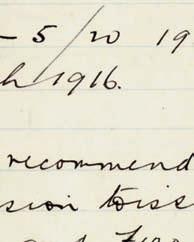 - 5/20 19
h 1916.
recommend
sion to iss